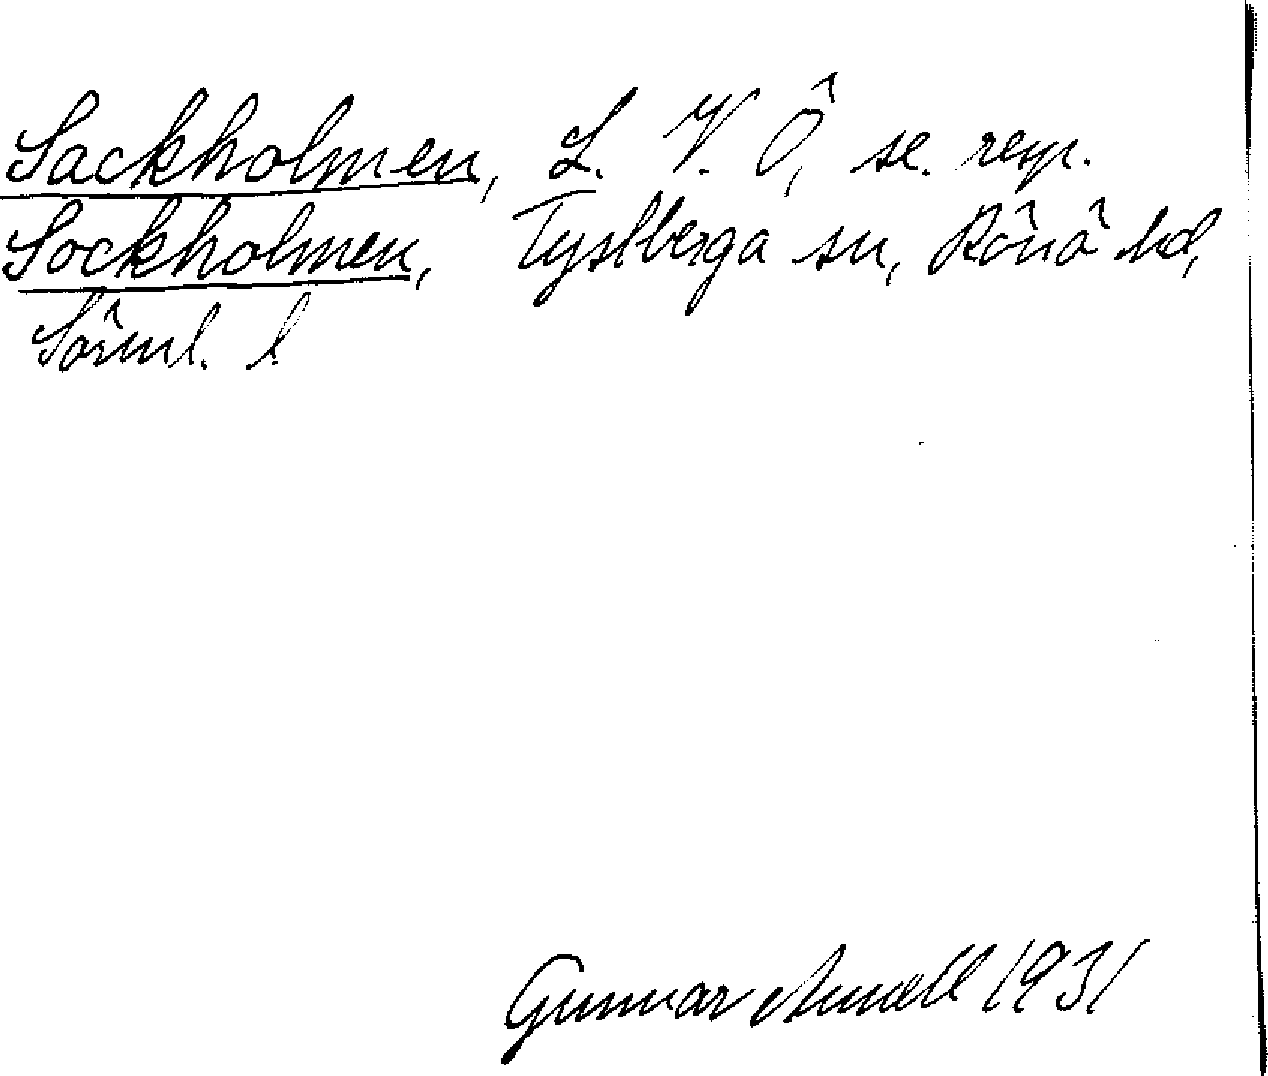 Sackholmen, L. V. Ö, se. resp.
Sockholmen, Tystberga sn, Rönö hd,
Sörml. l
Gunnar Arnell 1931